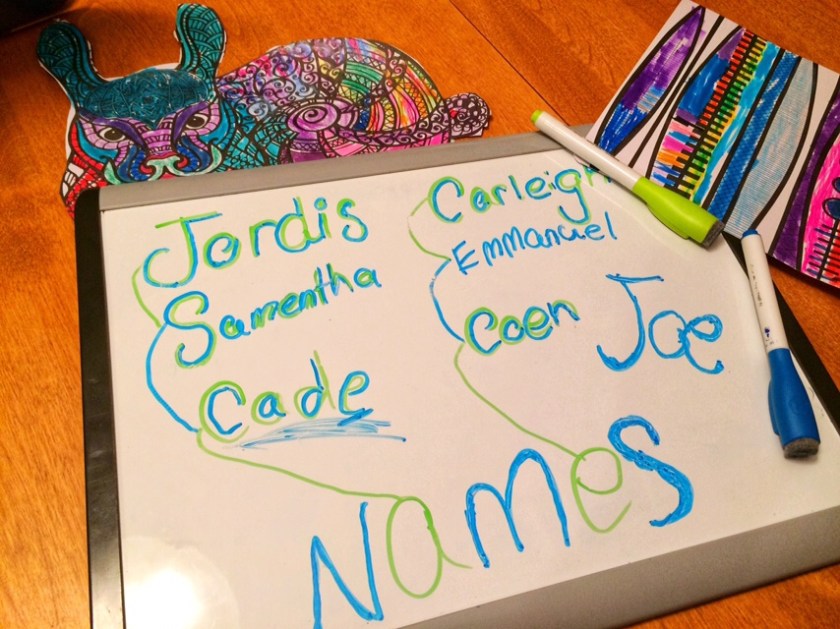 Jordis
Samentha
Cade
Carleigh
Emmanuel
Coen
Joe
Names